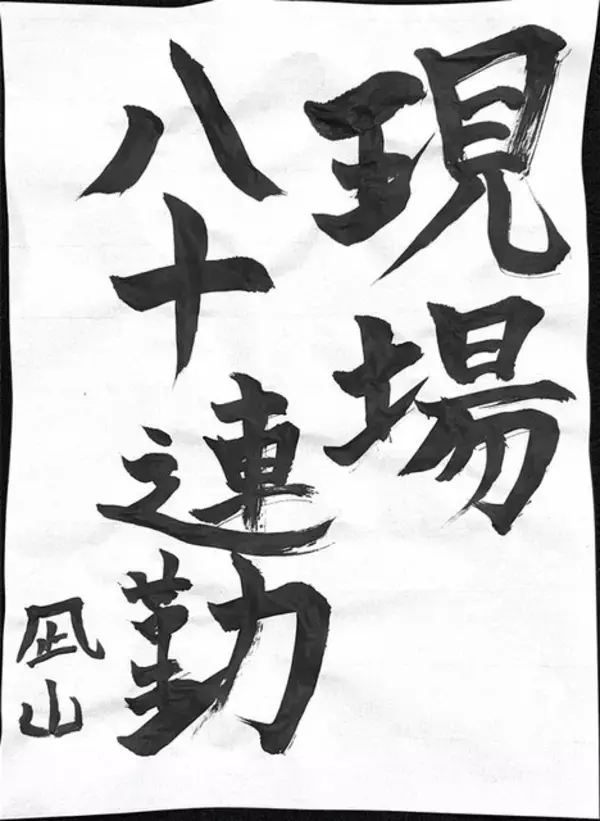 現場
八十連勤
凪山